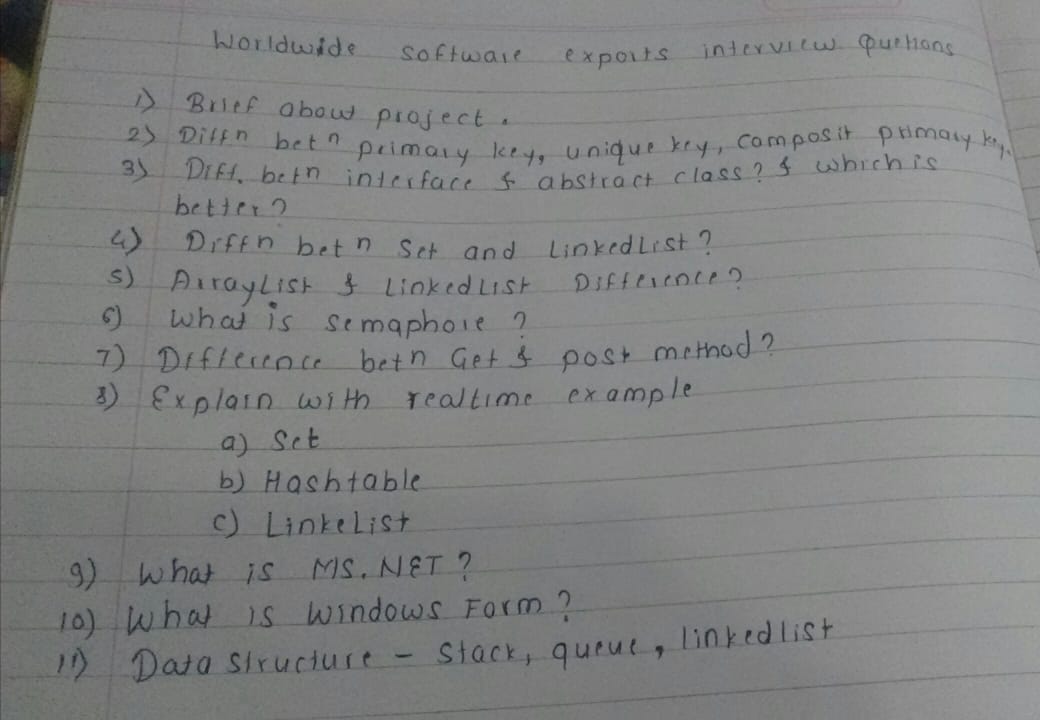 Worldwide software exports interview Quetions
1) Brief about project.
2) Diffn betn primary key, unique key, composit primary key.
3) Diff. betn interface & abstract class? & which is
better?
4) Diffn betn Set and LinkedList?
5) ArrayList & LinkedList Difference?
6) What is semaphore?
7) Difference betn Get & post method?
8) Explain with realtime example
a) Set
b) Hashtable
c) LinkeList
9) What is MS.NET?
10) What is Windows Form?
11) Data Structure - Stack, queue, linkedlist